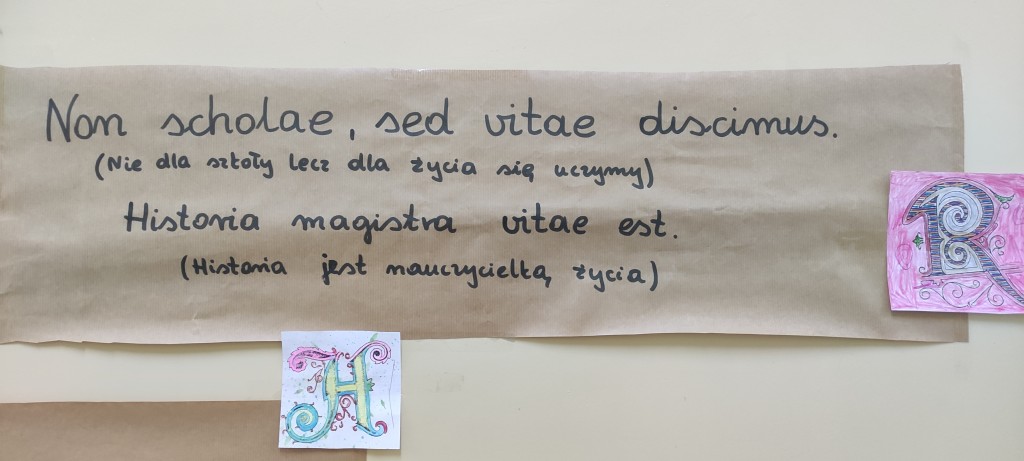 Non scholae, sed vitae discimus.
(Nie dla szkoły lecz dla życia się uczymy)
Historia magistra vitae est.
(Historia jest nauczycielką życia)
R
H